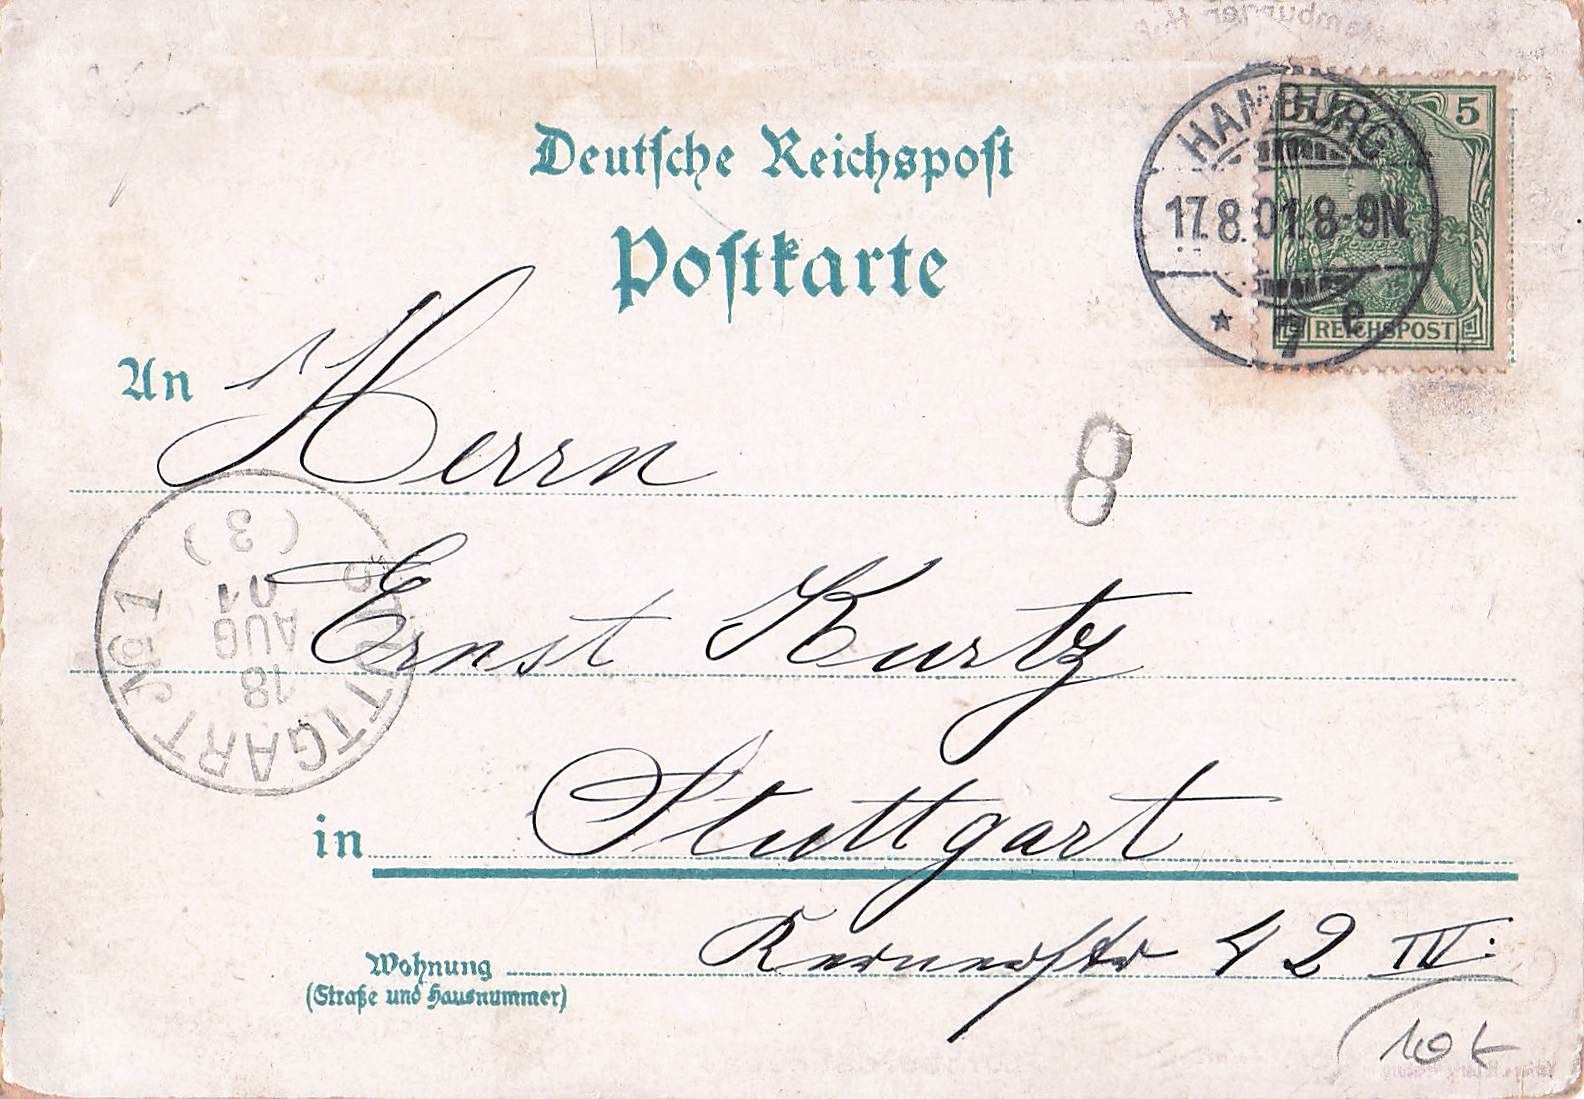 Deutsche Reichspost
Postkarte
HAMBURG
17.8.01.8-9N
* 7 e
5
REICHSPOST
An Herrn
8
Ernst Kurtz
STUTTGART No 1
18
AUG
01
(3)
in Stuttgart
Wohnung
(Straße und Hausnummer)
Kernerstr 42 IV.